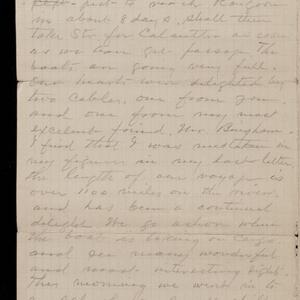 to reach Rangoon
in about 8 days, shall then
take Str. for Calcutta as soon
as we can get passage the
boats are going very full.
Our hearts were delighted by
two cables, one from you
and one from my most
excelent friend, Mr. Bingham.
I find that I was mistaken in
my figures in my last letter,
the length of our voyage is
over 1100 miles on the river
and has been a continual
delight. We go ashore when
the boat is taking on cargo
and see many wonderful
and most interesting sights.
This morning we were in to